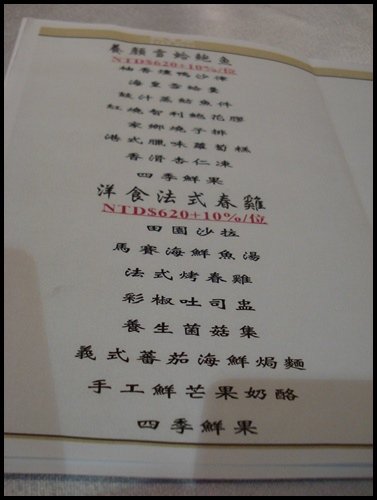 養顏雪蛤鮑魚
NTD$620+10%/位
柚香燻鴨沙律
海皇雪蛤羹
豉汁蒸鮕魚件
紅燒智利鮑花膠
家鄉燒子排
港式臘味蘿蔔糕
香滑杏仁凍
四季鮮果
洋食法式春雞
NTD$620+10%/位
田園沙拉
馬賽海鮮魚湯
法式烤春雞
彩椒吐司盅
養生菌菇集
義式蕃茄海鮮焗麵
手工鮮芒果奶酪
四季鮮果